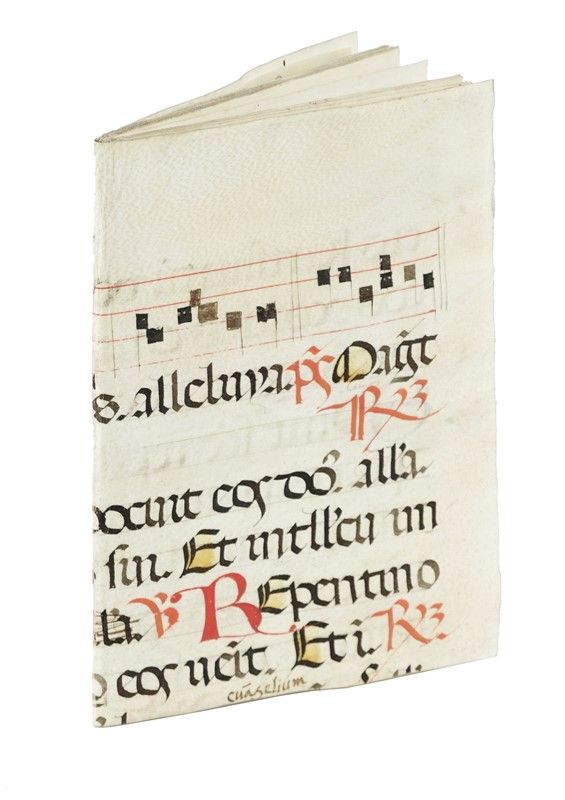 s. alleluya. ps̄ Magt̄
R℣
docuit eos dōs. alla.
sui. Et intlłcu im
lla. ℣ REpentino
eos ueit. Et i. R℣.
euāgelium